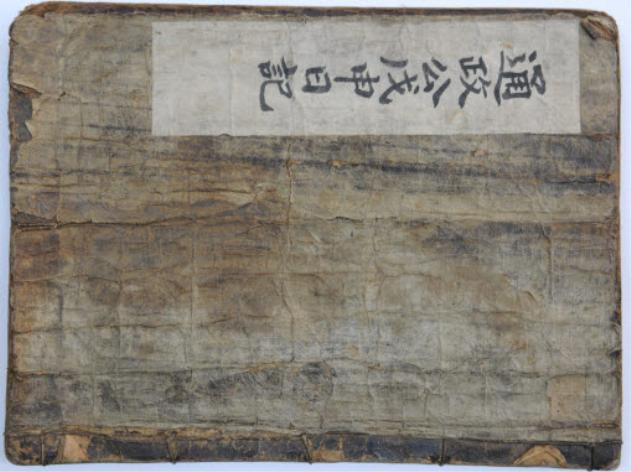 通政公戊申日記